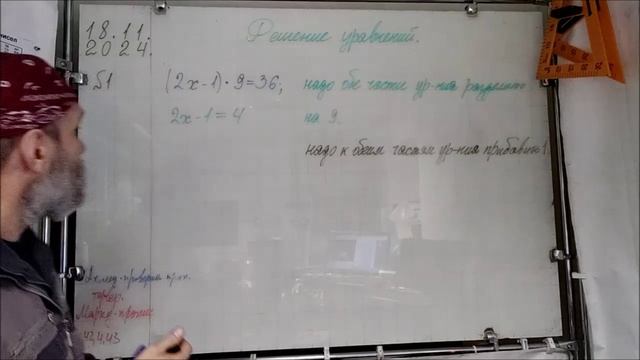 18.11.
2024.
Решение уравнений.
§1
(2x-1)·9=36; надо обе части ур-ния разделить
2x-1=4 на 9.
надо к обеим частям ур-ния прибавить 1
42,4,43